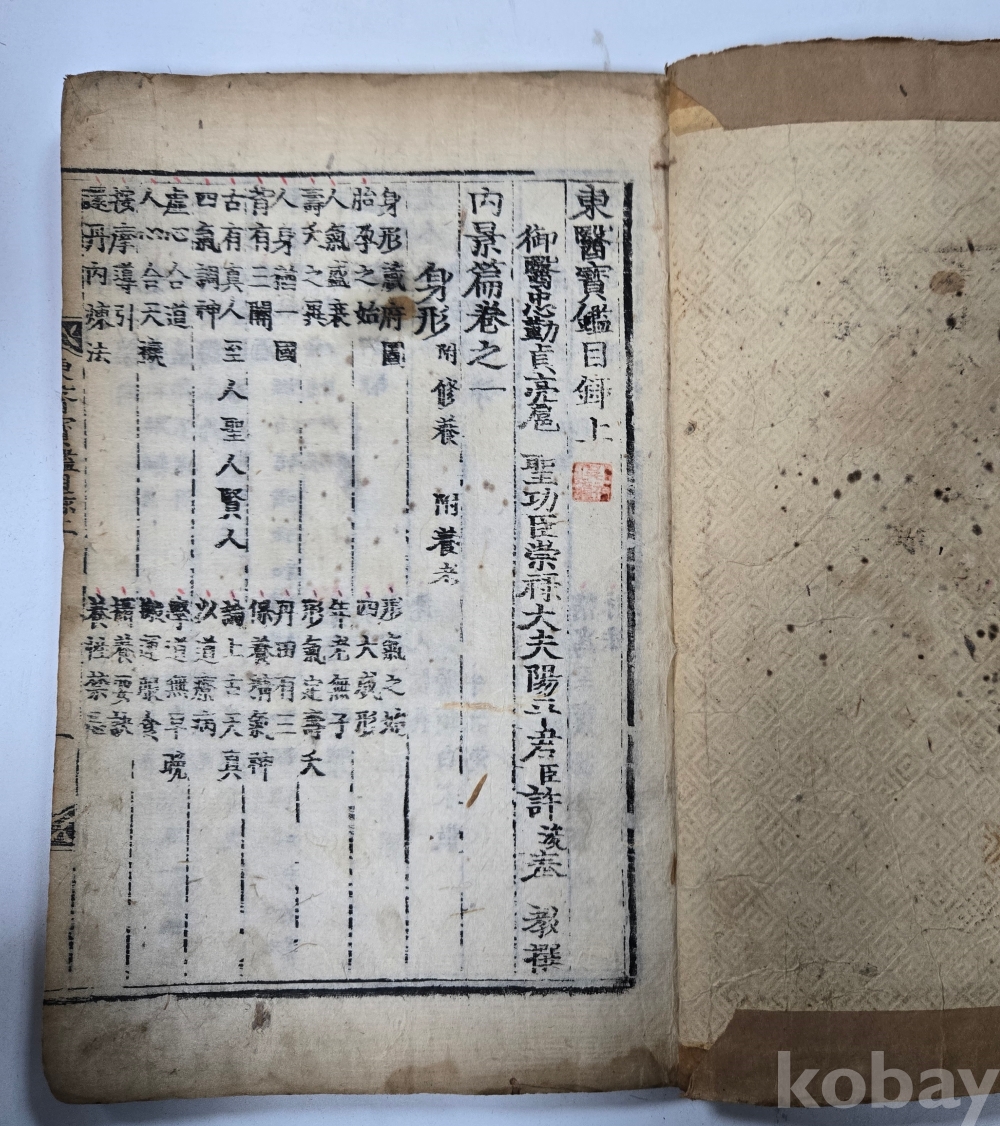 東醫寶鑑目錄上
御醫忠勤貞亮扈 聖功臣崇祿大夫陽平君臣許浚奉 教撰
內景篇卷之一
身形 附修養 附養老
身形藏府圖 形氣之始
胎孕之始 四大成形
人氣盛衰 年老無子
壽夭之異 形氣定壽夭
人身猶一國 丹田有三
背有三關 保養精氣神
古有真人至人聖人賢人 論上古天真
四氣調神 以道療病
虛心合道 學道無早晚
人心合天機 搬運服食
按摩導引 攝養要訣
還丹內煉法 養性禁忌
kobay